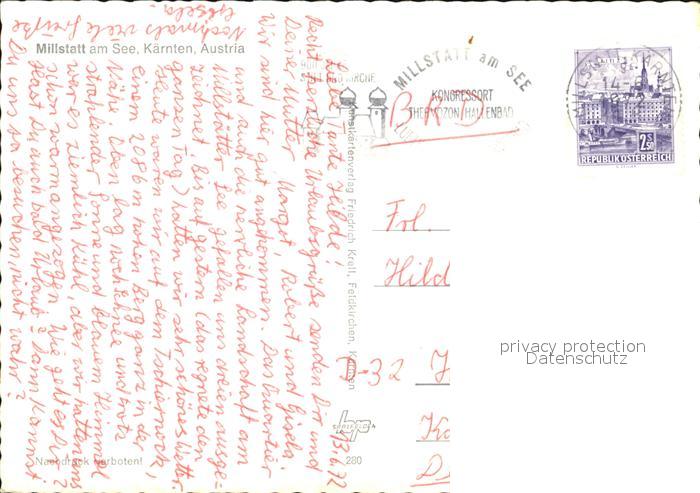 Millstatt am See, Kärnten, Austria
13.6.72
Liebe Tante Hilde!
Recht herzliche Urlaubsgrüße senden Dir und
Deiner Mutter Margot, Hubert und Gisela.
Wir sind hier gut angekommen. Das Quartier
und auch die herrliche Landschaft am
Millstätter See gefallen uns dreien ausge-
zeichnet. Bis auf gestern (das regnete den
ganzen Tag) hatten wir sehr schönes Wetter.
Heute waren wir auf dem Tschiernock,
einem 2086 m hohen Berg ganz in der
Nähe. Oben lag noch Schnee und trotz
strahlender Sonne und blauem Himmel
war es ziemlich kühl, aber wir hatten uns
schon warm angezogen. Wie geht es Dir?
Hast Du auch bald Urlaub? Dann kannst
Du uns ja besuchen, nicht wahr?
Nochmals viele Grüße
Gisela.
Nachdruck verboten!
280
Ansichtskartenverlag Friedrich Kroll, Feldkirchen, Kärnten
MILLSTATT am SEE
KONGRESSORT
THERMOZON HALLENBAD
STIFTSKIRCHE
2S50
REPUBLIK ÖSTERREICH
BRD
Frl.
Hild
D-32 H
privacy protection
Datenschutz